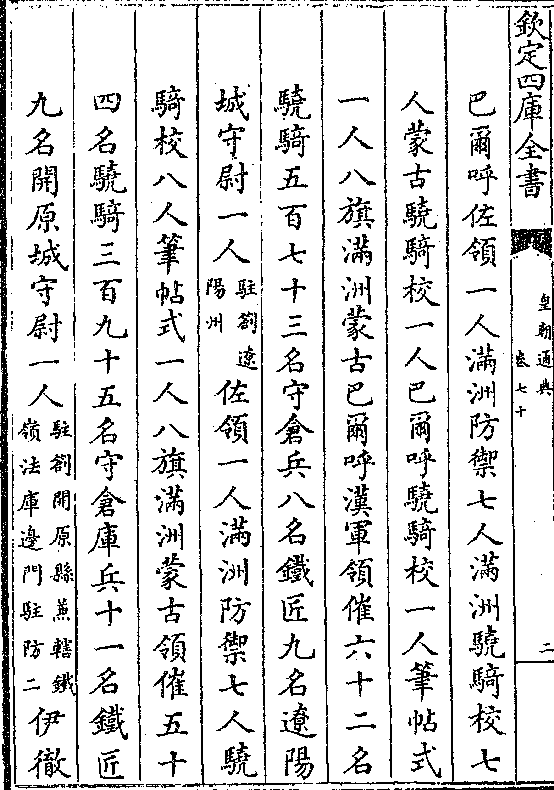 欽定四庫全書
皇朝通典
卷七十
二
巴爾呼佐領一人滿洲防禦七人滿洲驍騎校七
人蒙古驍騎校一人巴爾呼驍騎校一人筆帖式
一人八旗滿洲蒙古巴爾呼漢軍領催六十二名
驍騎五百七十三名守倉兵八名鐵匠九名遼陽
城守尉一人駐劄遼陽州佐領一人滿洲防禦七人驍
騎校八人筆帖式一人八旗滿洲蒙古領催五十
四名驍騎三百九十五名守倉庫兵十一名鐵匠
九名開原城守尉一人駐劄開原縣兼轄鐵嶺法庫邊門駐防二伊徹